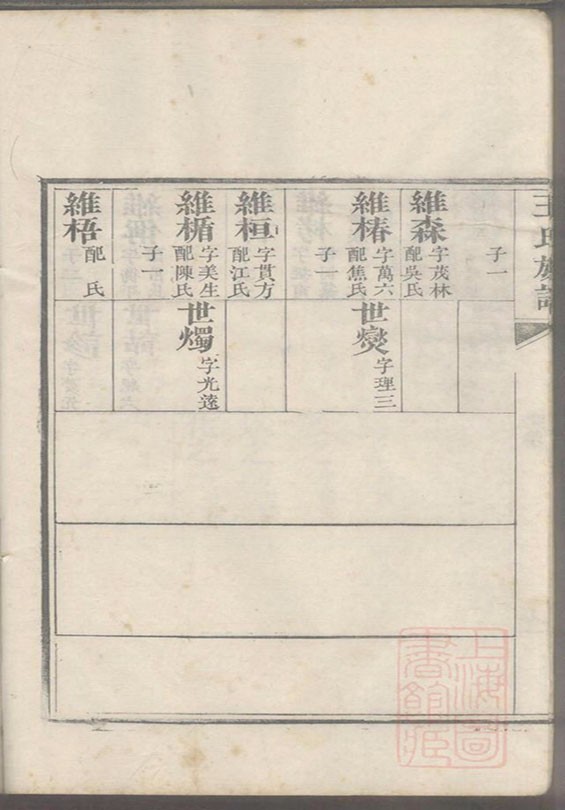 王氏族譜
子一
維森
字茂林
配吳氏
維椿
字萬六
配焦氏
子一
世燮
字理三
維桓
字貫方
配江氏
維楯
字美生
配陳氏
子一
世燭
字光遠
維梧
配　氏
上海圖
書館藏